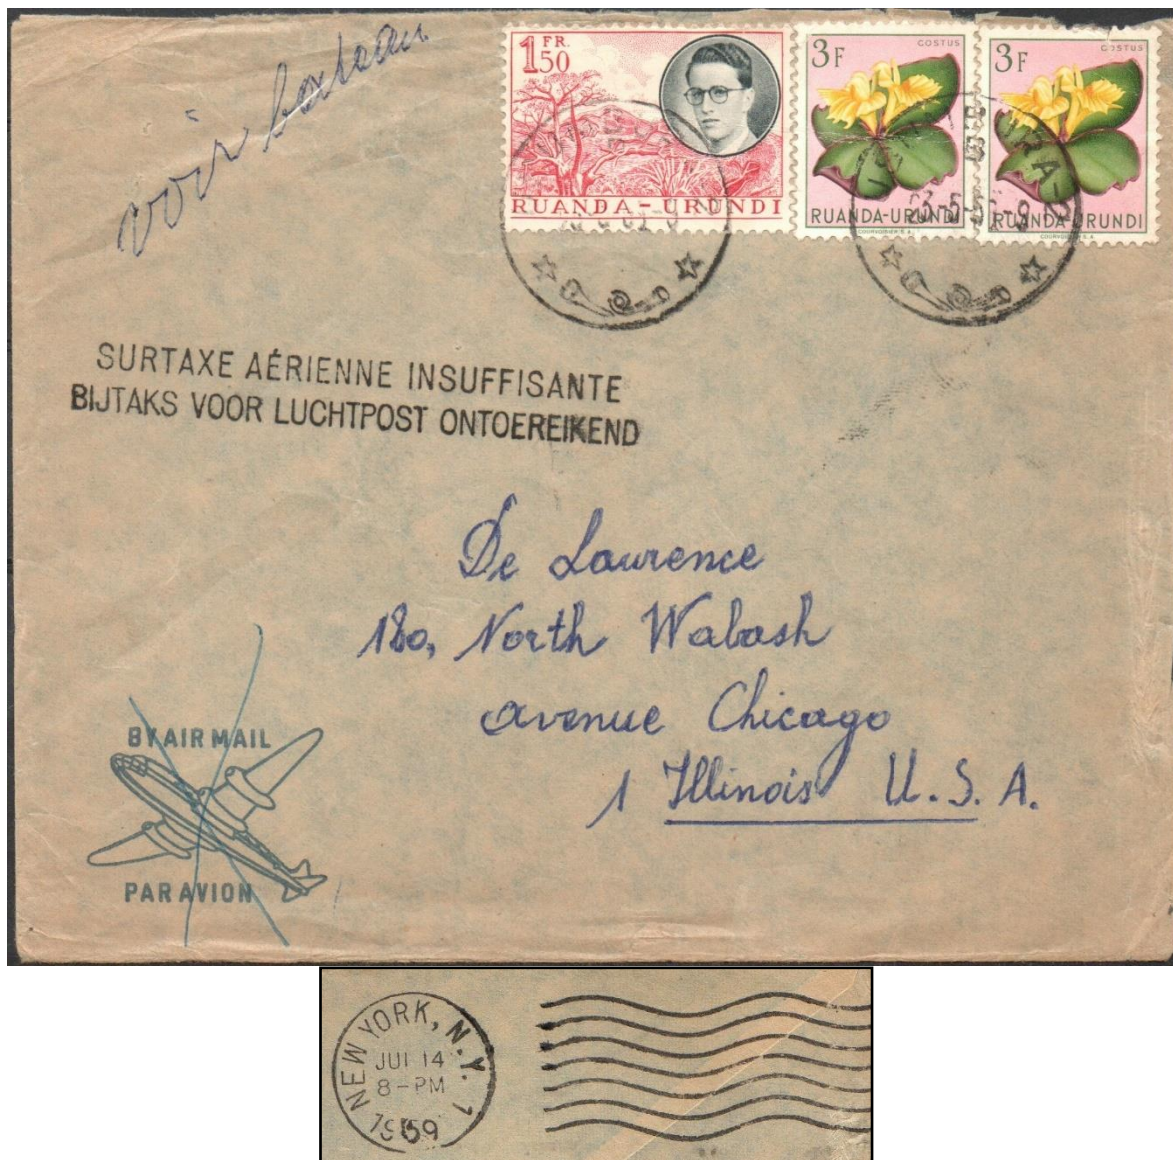 voir bordeau
1 FR. 50
RUANDA-URUNDI
3F
COSTUS
RUANDA-URUNDI
COURVOISIER S.A.
3F
COSTUS
RUANDA-URUNDI
COURVOISIER S.A.
SURTAXE AÉRIENNE INSUFFISANTE
BIJTAKS VOOR LUCHTPOST ONTOEREIKEND
De Laurence
180, North Wabash
avenue Chicago
1 Illinois U.S.A.
BY AIR MAIL
PAR AVION
NEW YORK, N.Y. 1
JUL 14
8-PM
1959